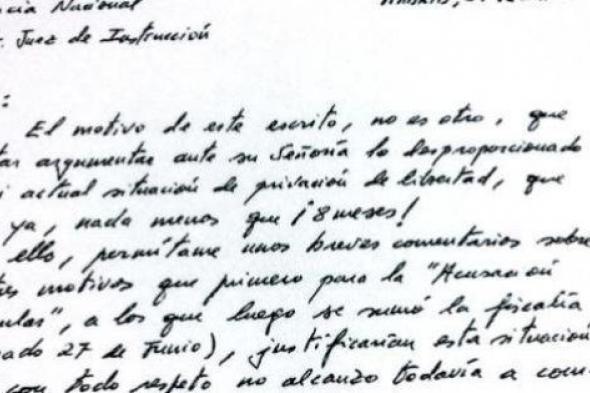 cia Nacional
Juez de Instrucción
:
El motivo de este escrito, no es otro, que
tar argumentar ante su Señoría lo desproporcionado
i actual situación de privación de libertad, que
ya, nada menos que ¡8 meses!
ello, permítame unos breves comentarios sobre
motivos que primero para la "Acusación
", a los que luego se sumó la fiscalía
ado 27 de Junio), justificarían esta situación
con todo respeto no alcanzo todavía a com-